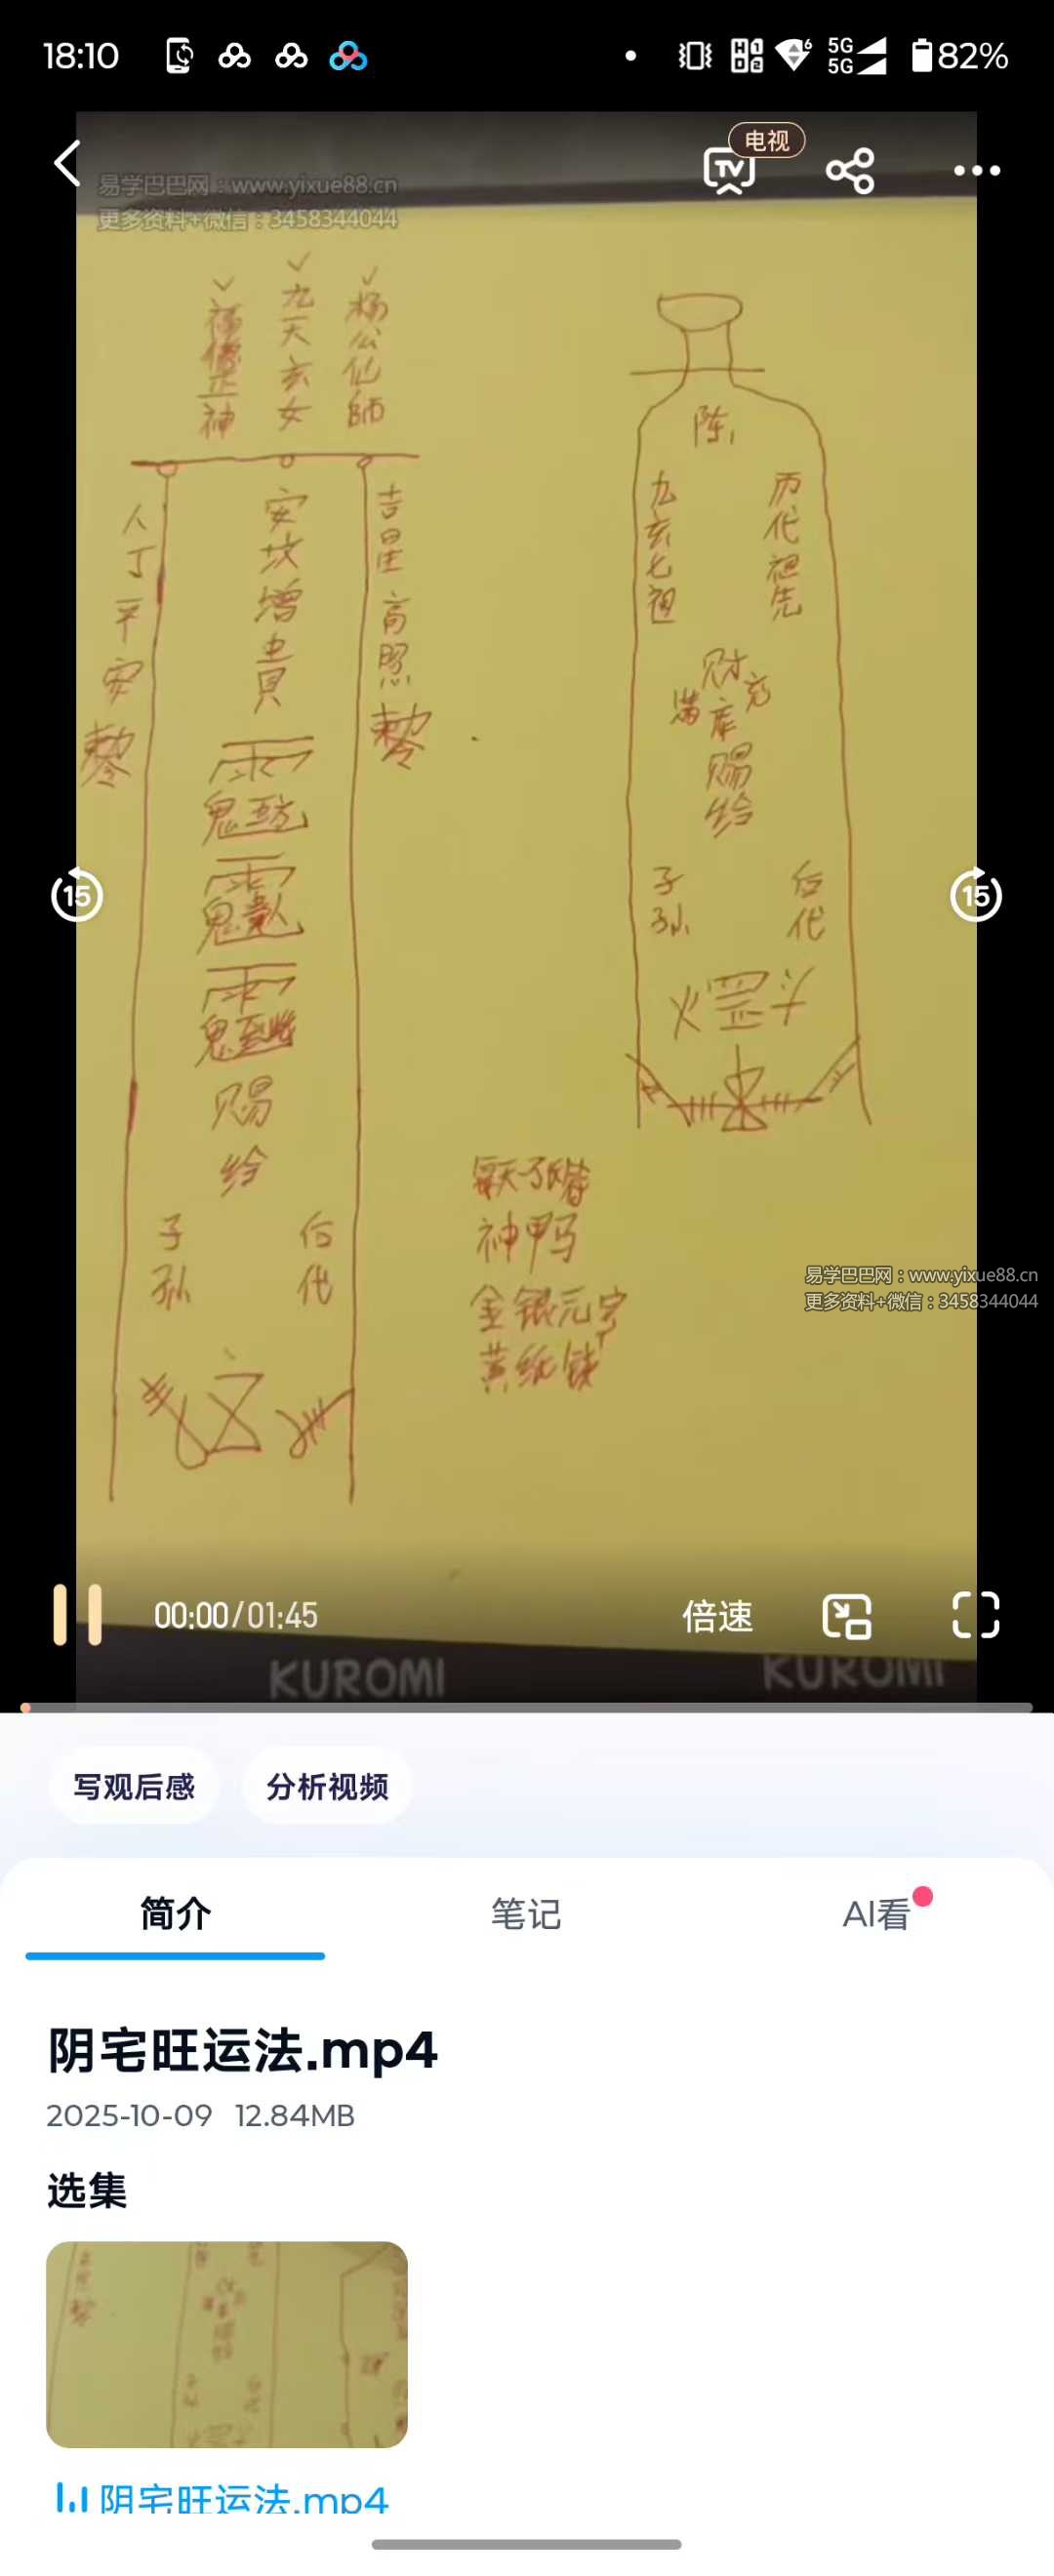 18:10
5G
5G
82%
电视
TV
易学巴巴网：www.yixue88.cn
更多资料+微信：3458344044
杨公仙師
九天玄女
福德正神
吉星高照
安坟增貴
人丁平安
赐给
子孙
后代
陈
历代祖先
九玄七祖
财库充满
赐给
子孙
后代
火罡斗
每天一张
神鸭马
金银元宇
黄纸钱
15
15
易学巴巴网：www.yixue88.cn
更多资料+微信：3458344044
00:00/01:45
倍速
KUROMI
KUROMI
写观后感
分析视频
简介
笔记
AI看
阴宅旺运法.mp4
2025-10-09 12.84MB
选集
阴宅旺运法.mp4